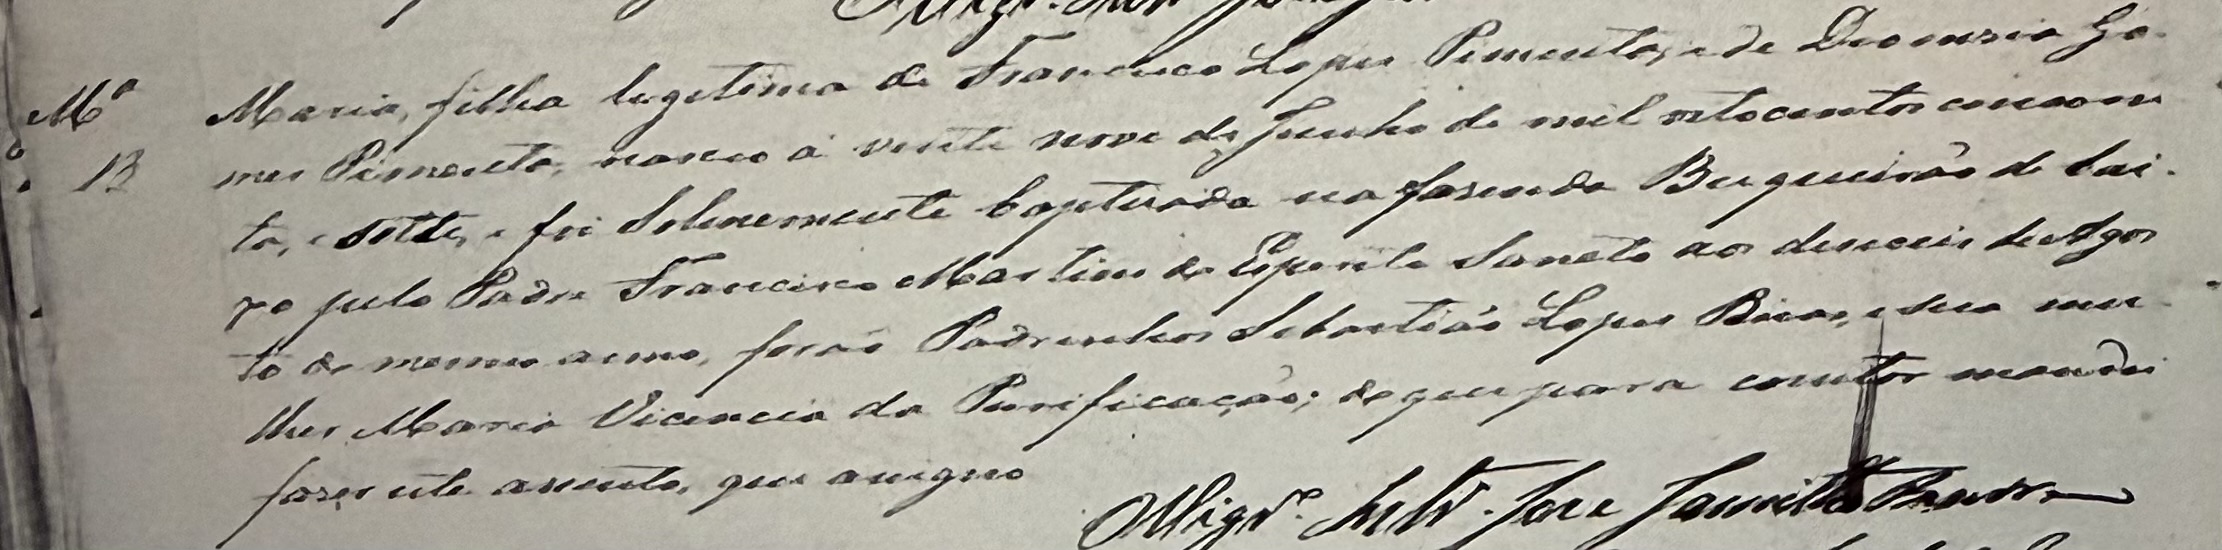 Mª Maria, filha legitima de Francisco Lopes Pimenta, e de Dionizia Go-
B mes Pimenta, nasceo á vinte nove de Junho de mil oitocentos cincoen
ta, e sette, e foi Solenemente baptisada na fasenda Buqueirão de Cai-
ro pelo Padre Francisco Martins do Espirito Sancto aos deseseis de Agos
to do mesmo anno, forão Padrinhos Sebastião Lopes e sua mu-
lher Maria Vicencia da Purificação; do que para constar mandei
faser este assento, que assigno
José